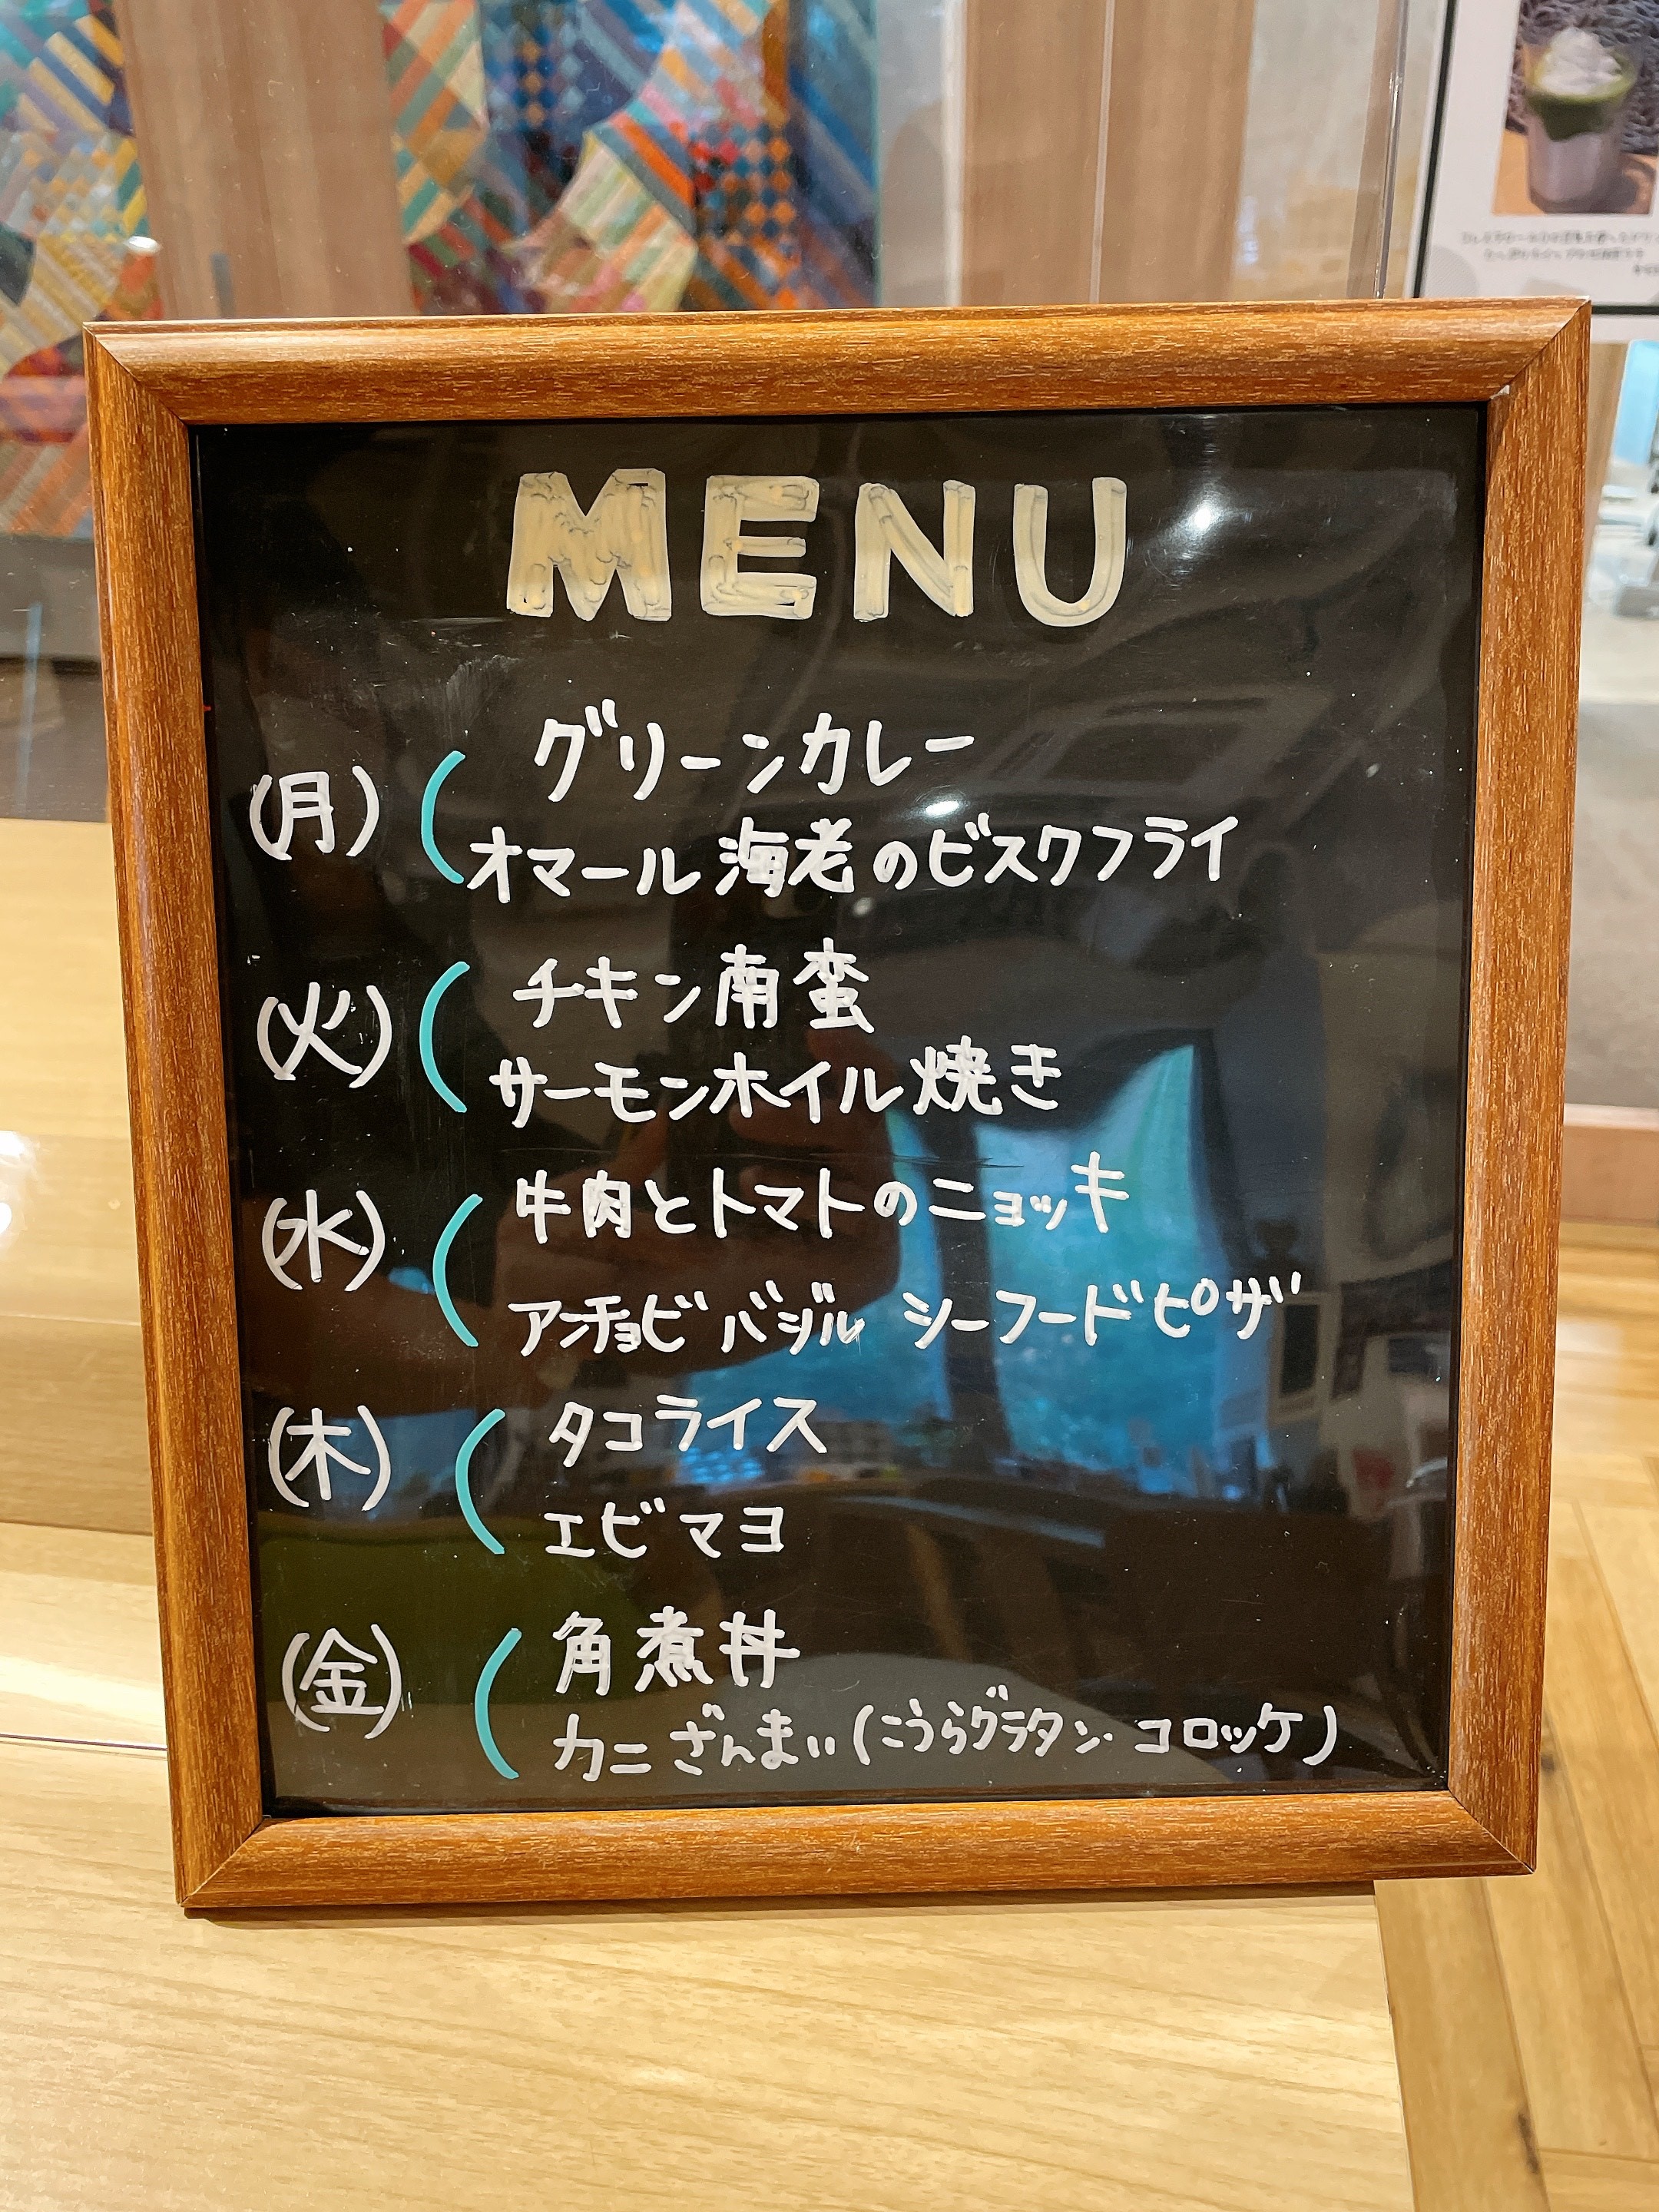 MENU
(月) グリーンカレー
オマール海老のビスクフライ
(火) チキン南蛮
サーモンホイル焼き
(水) 牛肉とトマトのニョッキ
アンチョビバジルシーフードピザ
(木) タコライス
エビマヨ
(金) 角煮丼
カニざんまい(こうらグラタン・コロッケ)